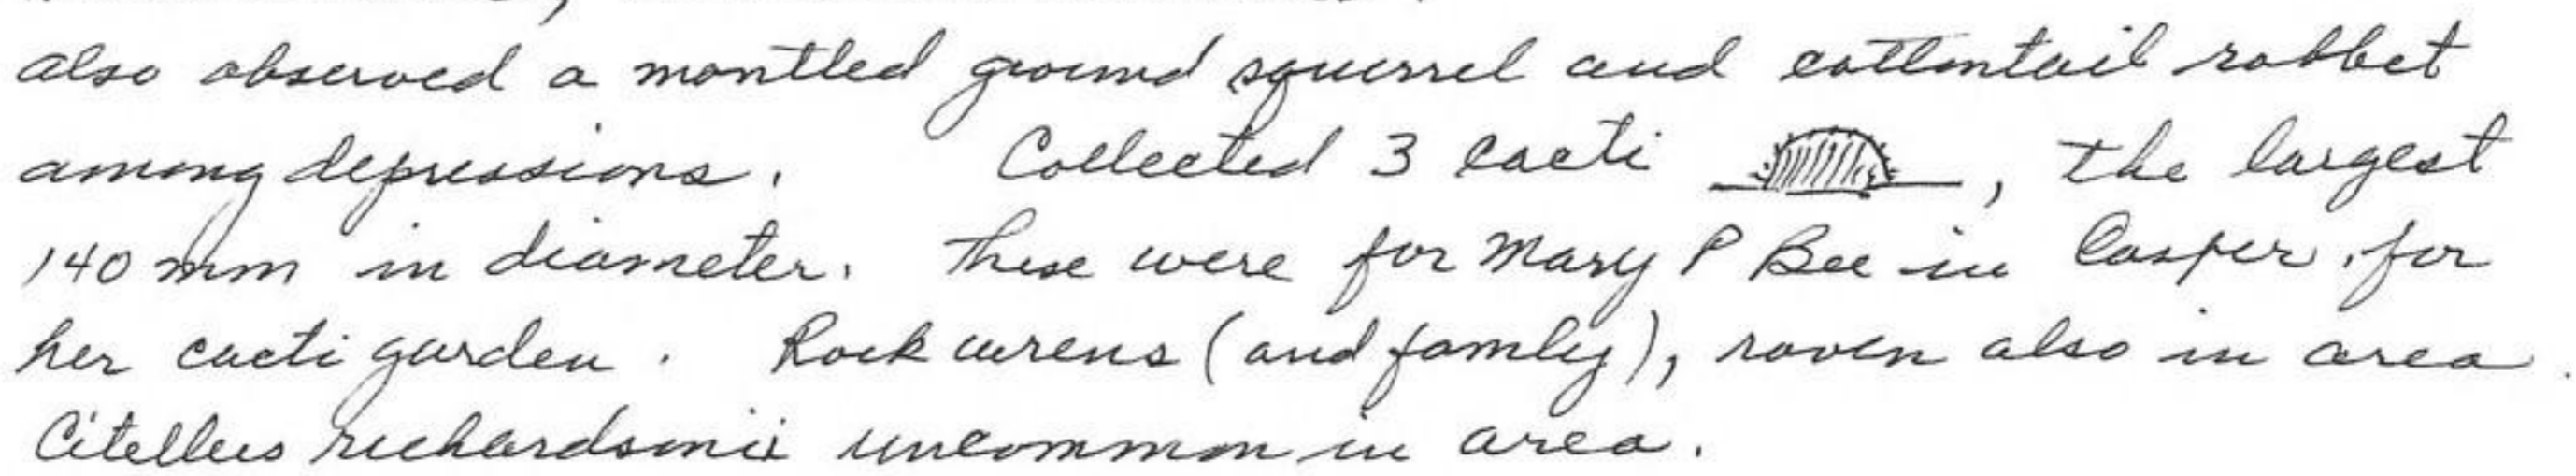 also observed a montled ground squirrel and cottontail rabbet
among depressions. Collected 3 cacti , the largest
140 mm in diameter. These were for Mary P Bee in Casper, for
her cacti garden. Rock wrens (and famly), raven also in area.
Citellus richardsonii uncommon in area.